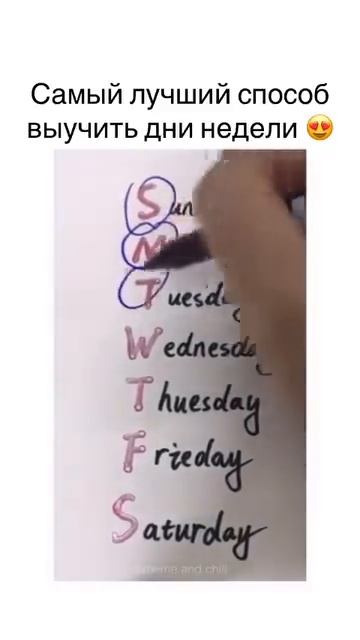 Самый лучший способ
выучить дни недели 😍
Sun
M
Tuesd
Wednesda
Thuesday
Frieday
Saturday
meme and chill